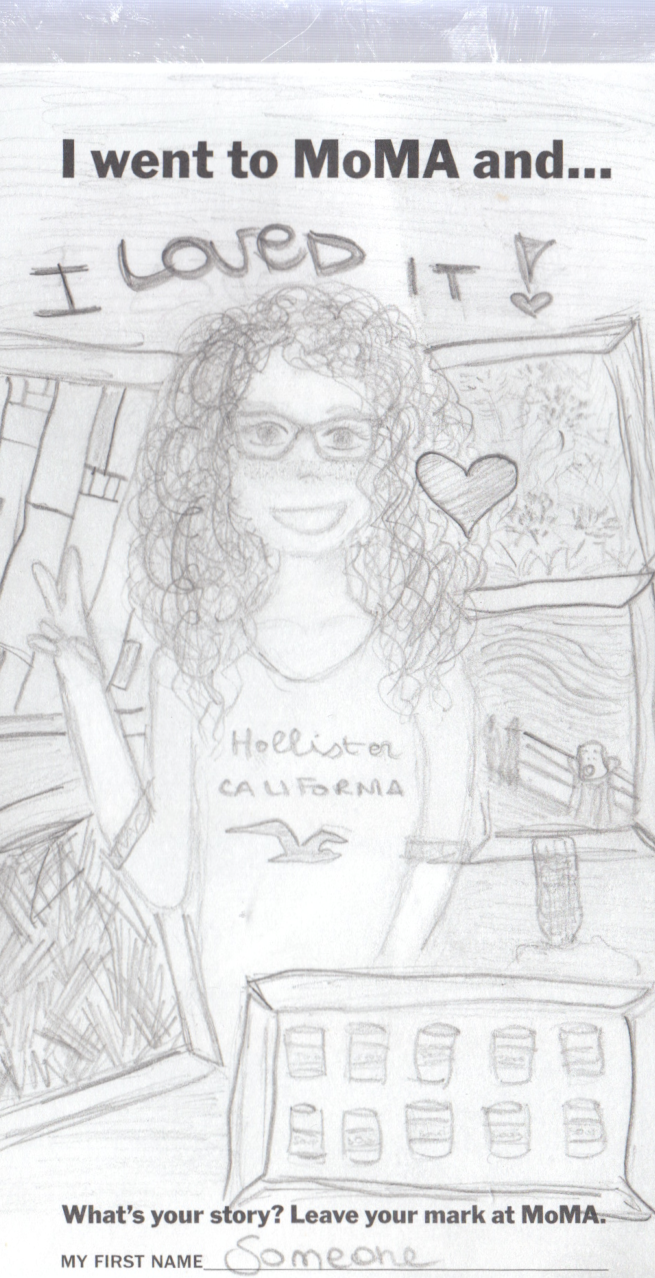 I went to MoMA and...
I LOVED IT!
Hollister
CALIFORNIA
What's your story? Leave your mark at MoMA.
MY FIRST NAME Someone